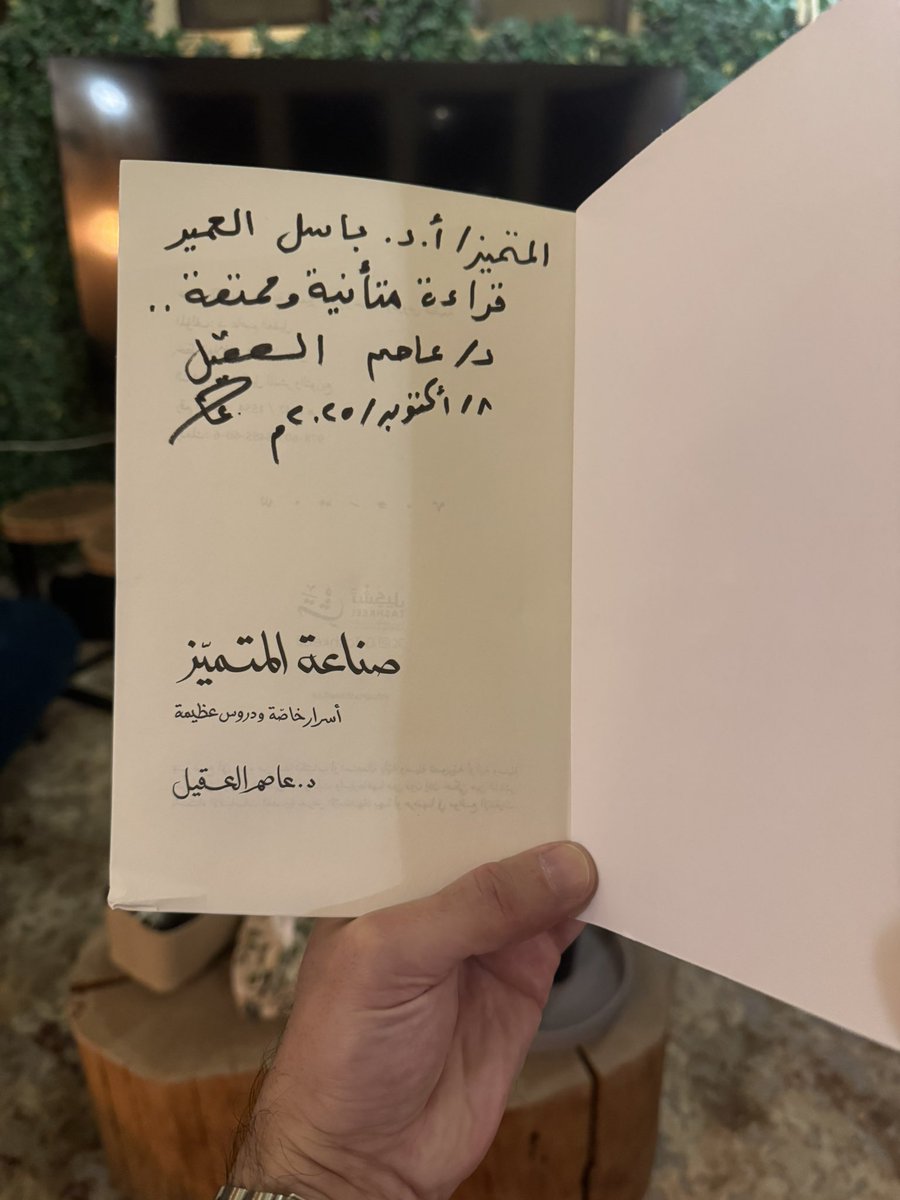 المتميز/ أ.د. باسل العمير
قراءة متأنية وممتعة ..
د/ عاصم العقيّل
٨/ أكتوبر/ ٢٠٢٥م
صناعة المتميّز
أسرار خاصّة ودروس عظيمة
د. عاصم العقيل